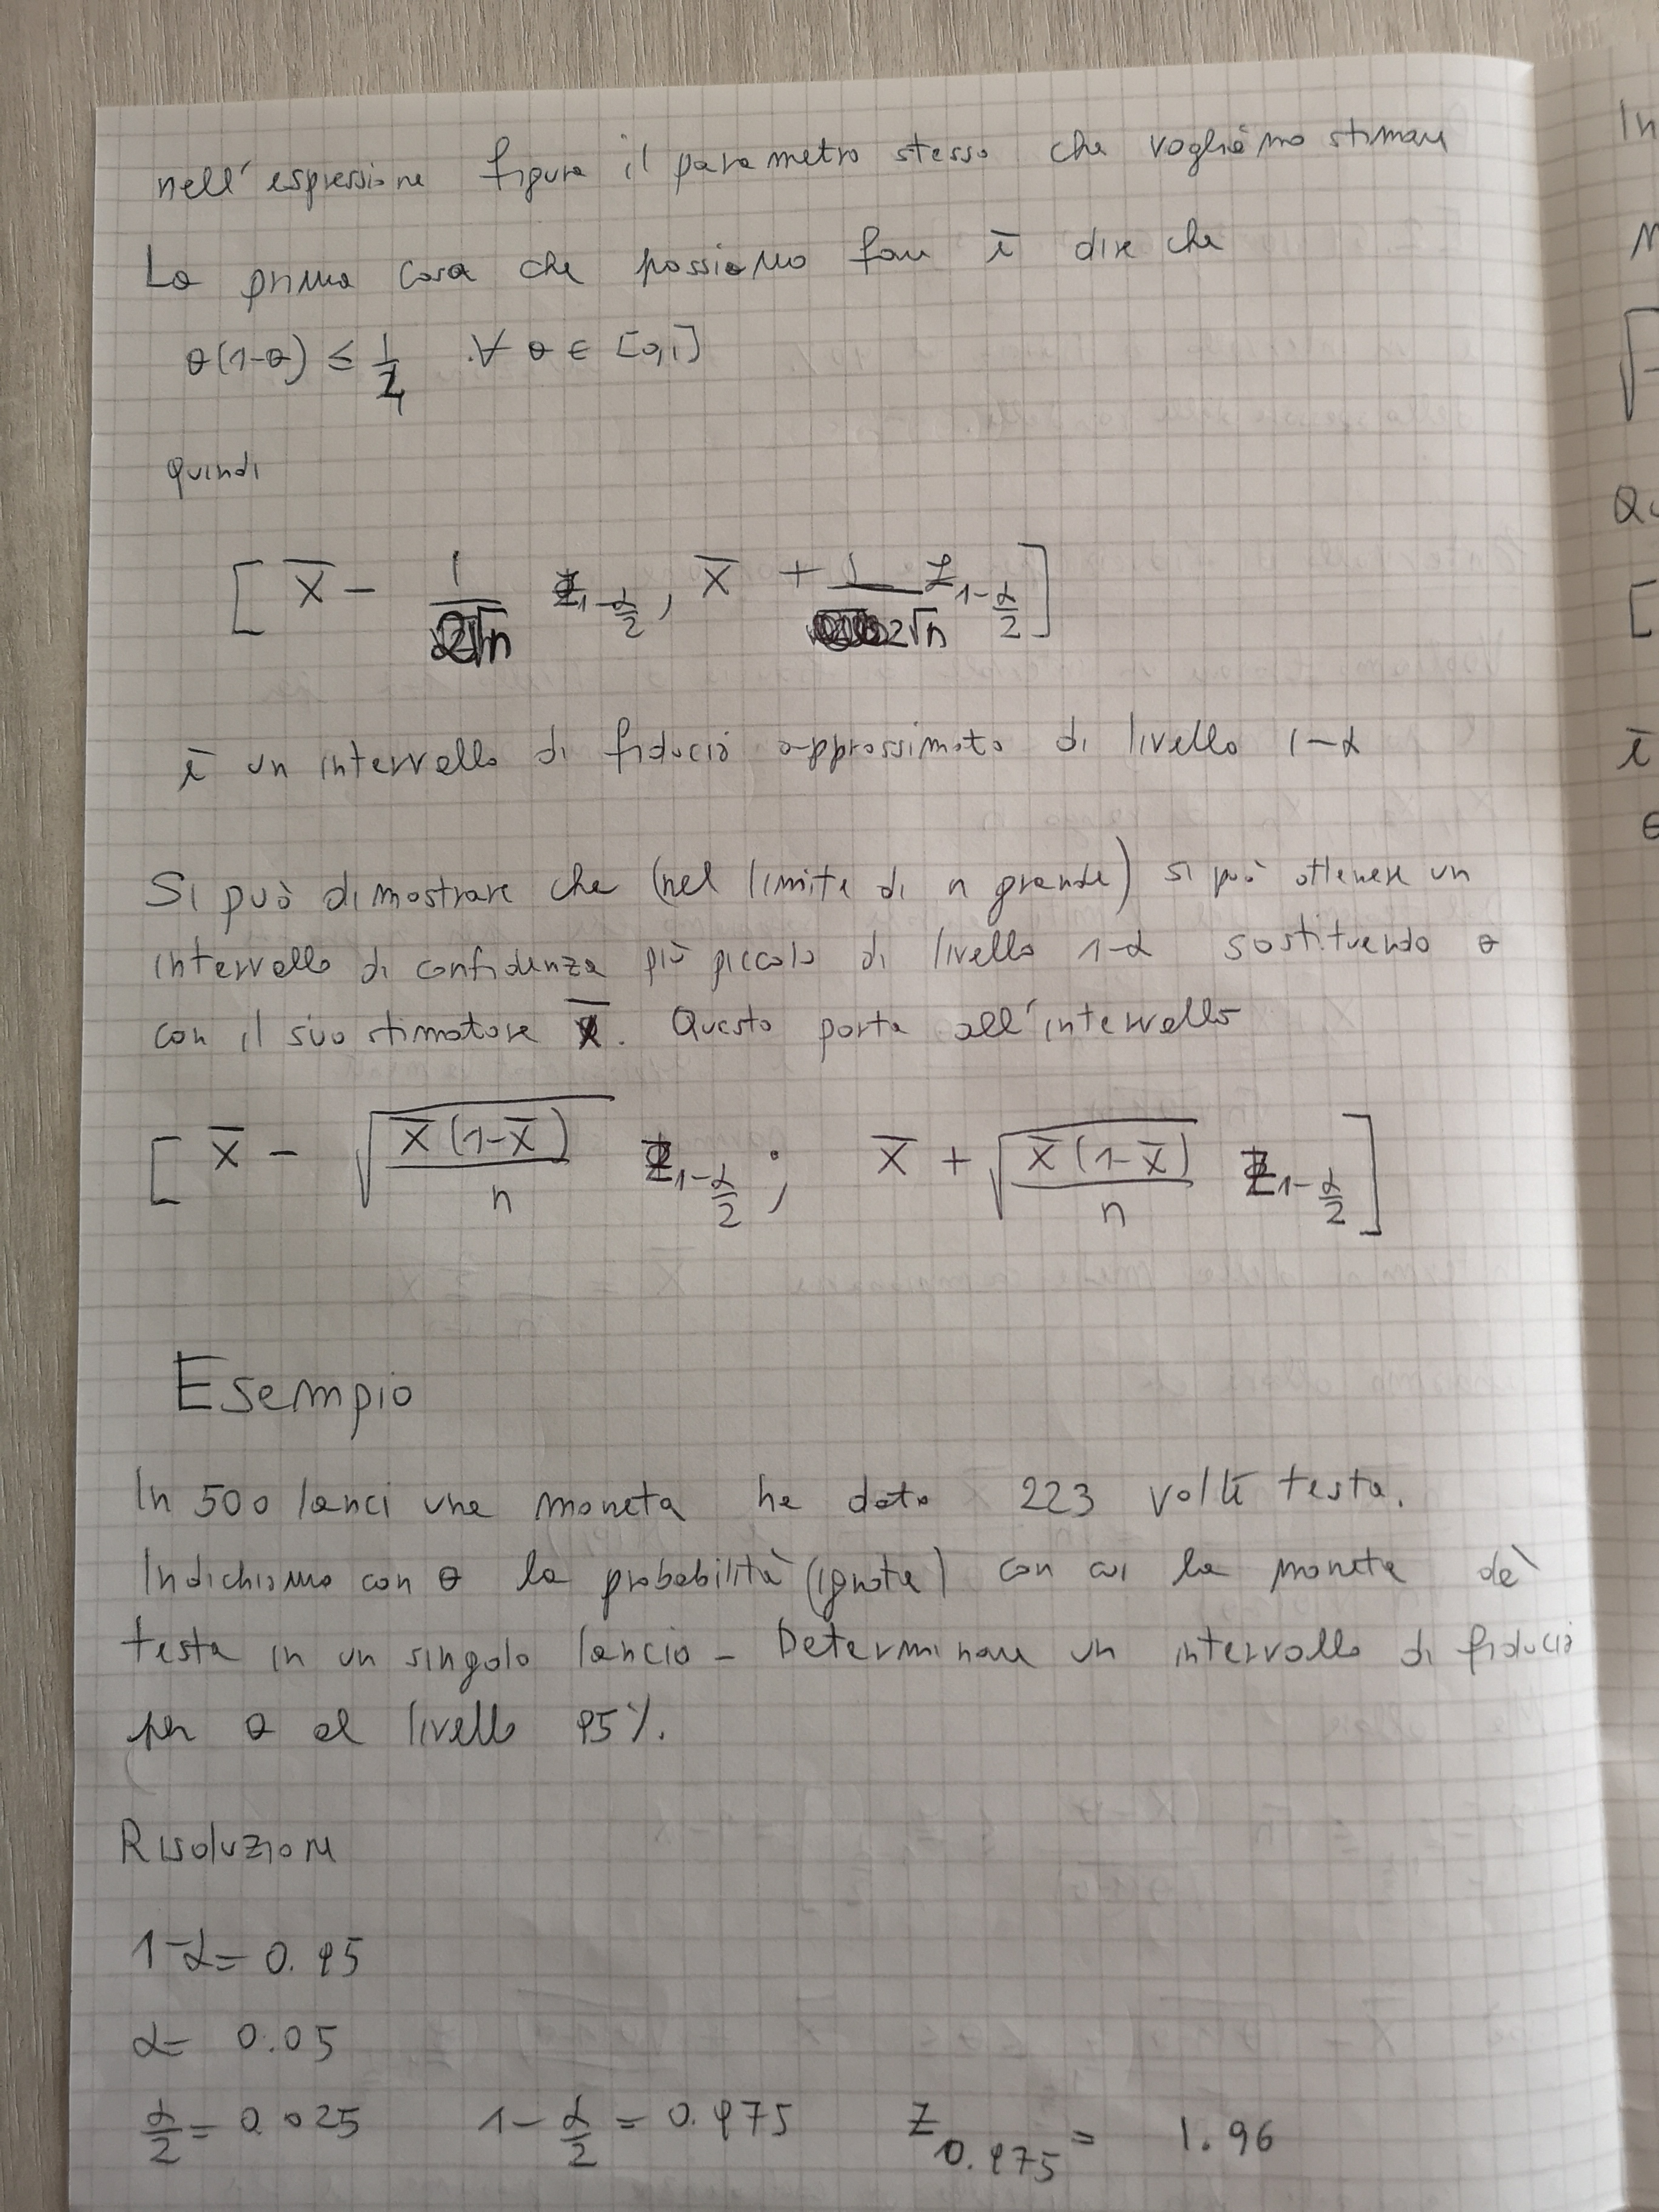 nell'espressione figura il parametro stesso che vogliamo stimare
La prima cosa che possiamo fare è dire che
θ(1-θ) ≤ 1/4 ∀ θ ∈ [0,1]
quindi
[ X̄ - 1/(2√n) z_{1-α/2}, X̄ + 1/(2√n) z_{1-α/2} ]
è un intervallo di fiducia approssimato di livello 1-α
Si può dimostrare che (nel limite di n grande) si può ottenere un
intervallo di confidenza più piccolo di livello 1-α sostituendo θ
con il suo stimatore X̄. Questo porta all'intervallo
[ X̄ - √(X̄(1-X̄)/n) z_{1-α/2} ; X̄ + √(X̄(1-X̄)/n) z_{1-α/2} ]
Esempio
In 500 lanci una moneta ha dato 223 volte testa.
Indichiamo con θ la probabilità (ignota) con cui la moneta dà
testa in un singolo lancio - Determinare un intervallo di fiducia
per θ al livello 95%.
Risoluzione
1-α = 0.95
α = 0.05
α/2 = 0.025 1-α/2 = 0.975 z_{0.975} = 1.96